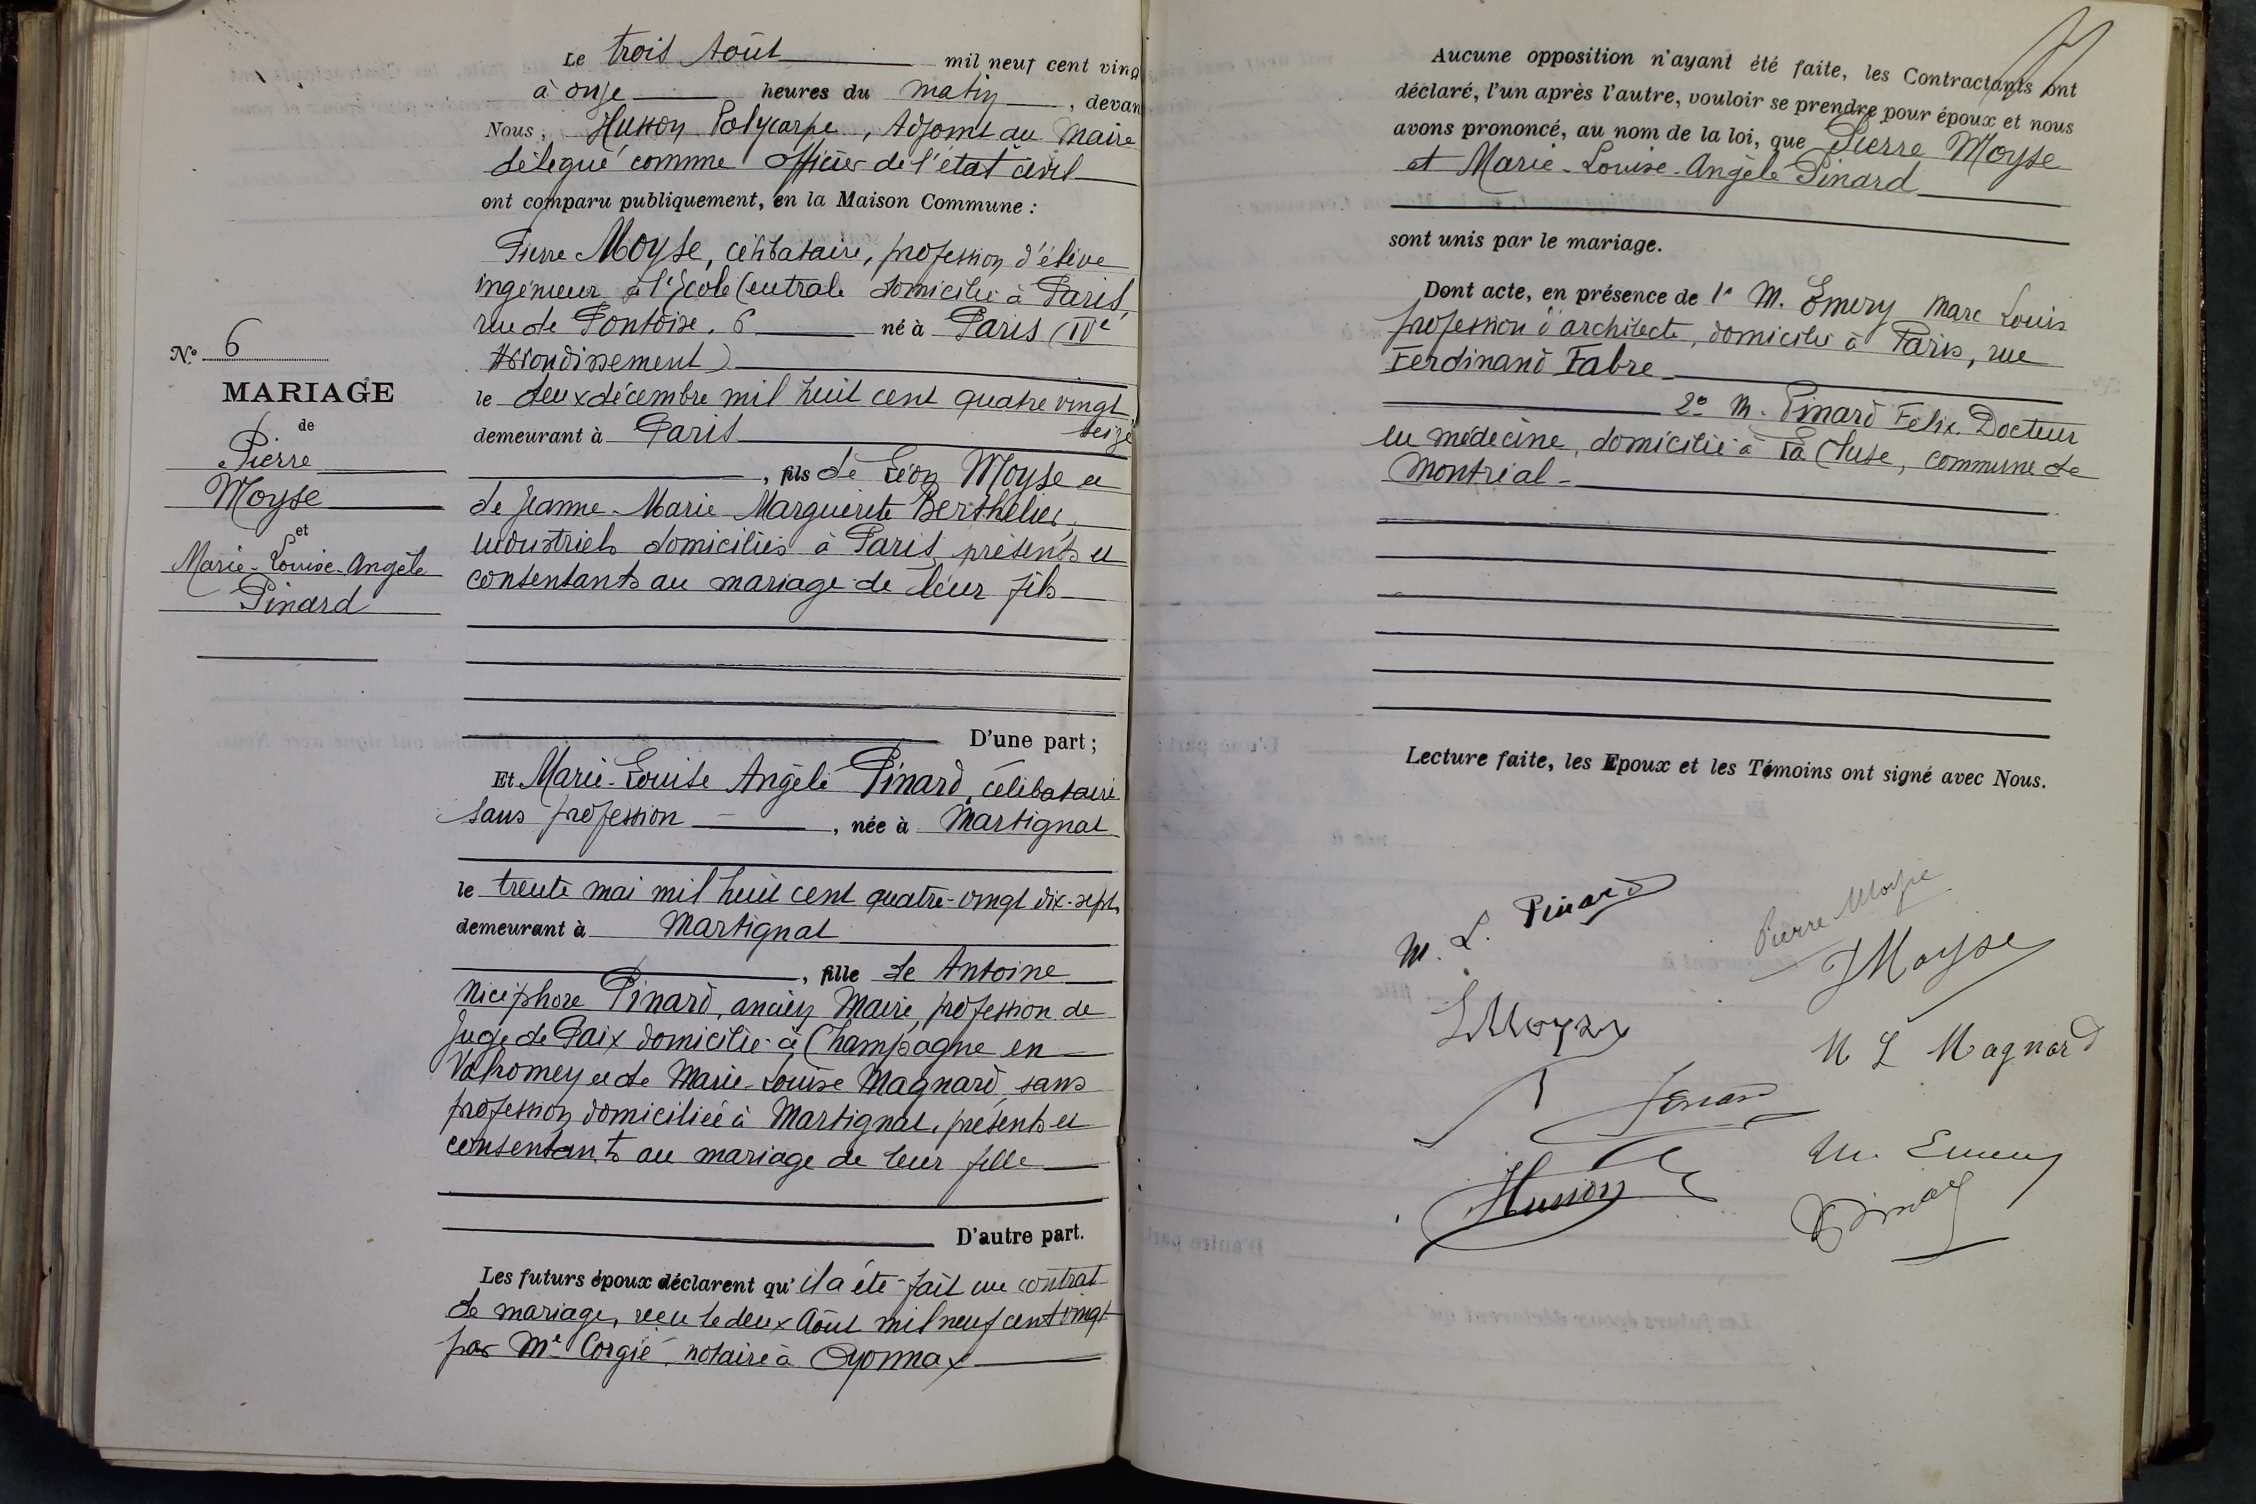 Le trois Août mil neuf cent ving
à onze heures du matin, devan
Nous, Husson Polycarpe, Adjoint au Maire
délégué comme officier de l'état civil
ont comparu publiquement, en la Maison Commune :
Pierre Moyse, célibataire, profession d'élève
ingénieur à l'école Centrale domicilié à Paris,
rue de Pontoise, 6 né à Paris (IVe
Arrondissement)
le deux décembre mil huit cent quatre vingt
seize
demeurant à Paris
, fils de Léon Moyse et
de Jeanne-Marie Marguerite Berthelier,
industriels domiciliés à Paris, présents et
consentants au mariage de leur fils
D'une part ;
N° 6
MARIAGE
de
Pierre
Moyse
et
Marie-Louise-Angèle
Pinard
Et Marie-Louise Angèle Pinard, célibataire
sans profession, née à Martignat
le trente mai mil huit cent quatre-vingt dix-sept
demeurant à Martignat
, fille de Antoine
Nicéphore Pinard, ancien Maire, profession de
Juge de Paix domicilié à Champagne en
Valromey et de Marie-Louise Magnard, sans
profession domiciliée à Martignat, présents et
consentants au mariage de leur fille
D'autre part.
Les futurs époux déclarent qu'il a été fait un contrat
de mariage, reçu le deux Août mil neuf cent vingt
par Me Corgié, notaire à Oyonnax
Aucune opposition n'ayant été faite, les Contractants ont
déclaré, l'un après l'autre, vouloir se prendre pour époux et nous
avons prononcé, au nom de la loi, que Pierre Moyse
et Marie-Louise-Angèle Pinard
sont unis par le mariage.
Dont acte, en présence de 1° M. Emery Marc Louis
profession d'architecte, domicilié à Paris, rue
Ferdinand Fabre
2° M. Pinard Félix. Docteur
en médecine, domicilié à La Cluse, commune de
Montréal
Lecture faite, les Epoux et les Témoins ont signé avec Nous.
M. L. Pinard
Pierre Moyse
J Moyse
L Moyse
M L Magnard
M. Emery
Husson